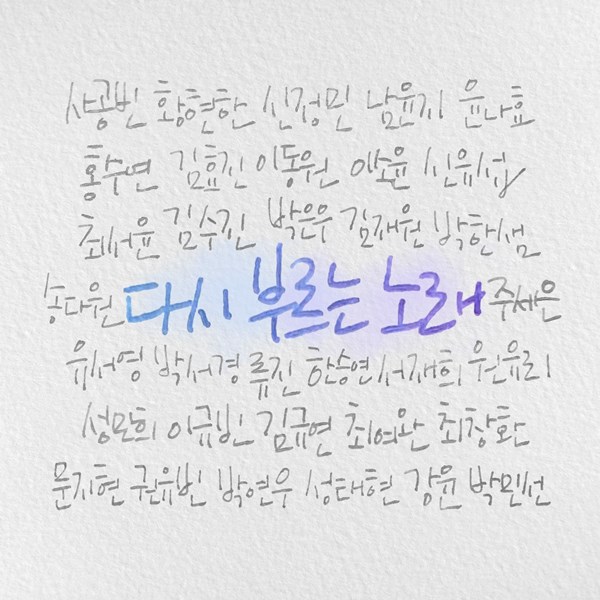 사공빈 황현한 신정민 남윤지 윤나효
홍수연 김효진 이동원 이소윤 신유섭
최서윤 김수진 박은우 김재원 박한샘
송다원 다시 부르는 노래 주세은
유서영 박서경 류진 한승연 서재희 원유리
성만희 이규빈 김규연 최여완 최창환
문지현 권유빈 박연우 성태현 강윤 박민선